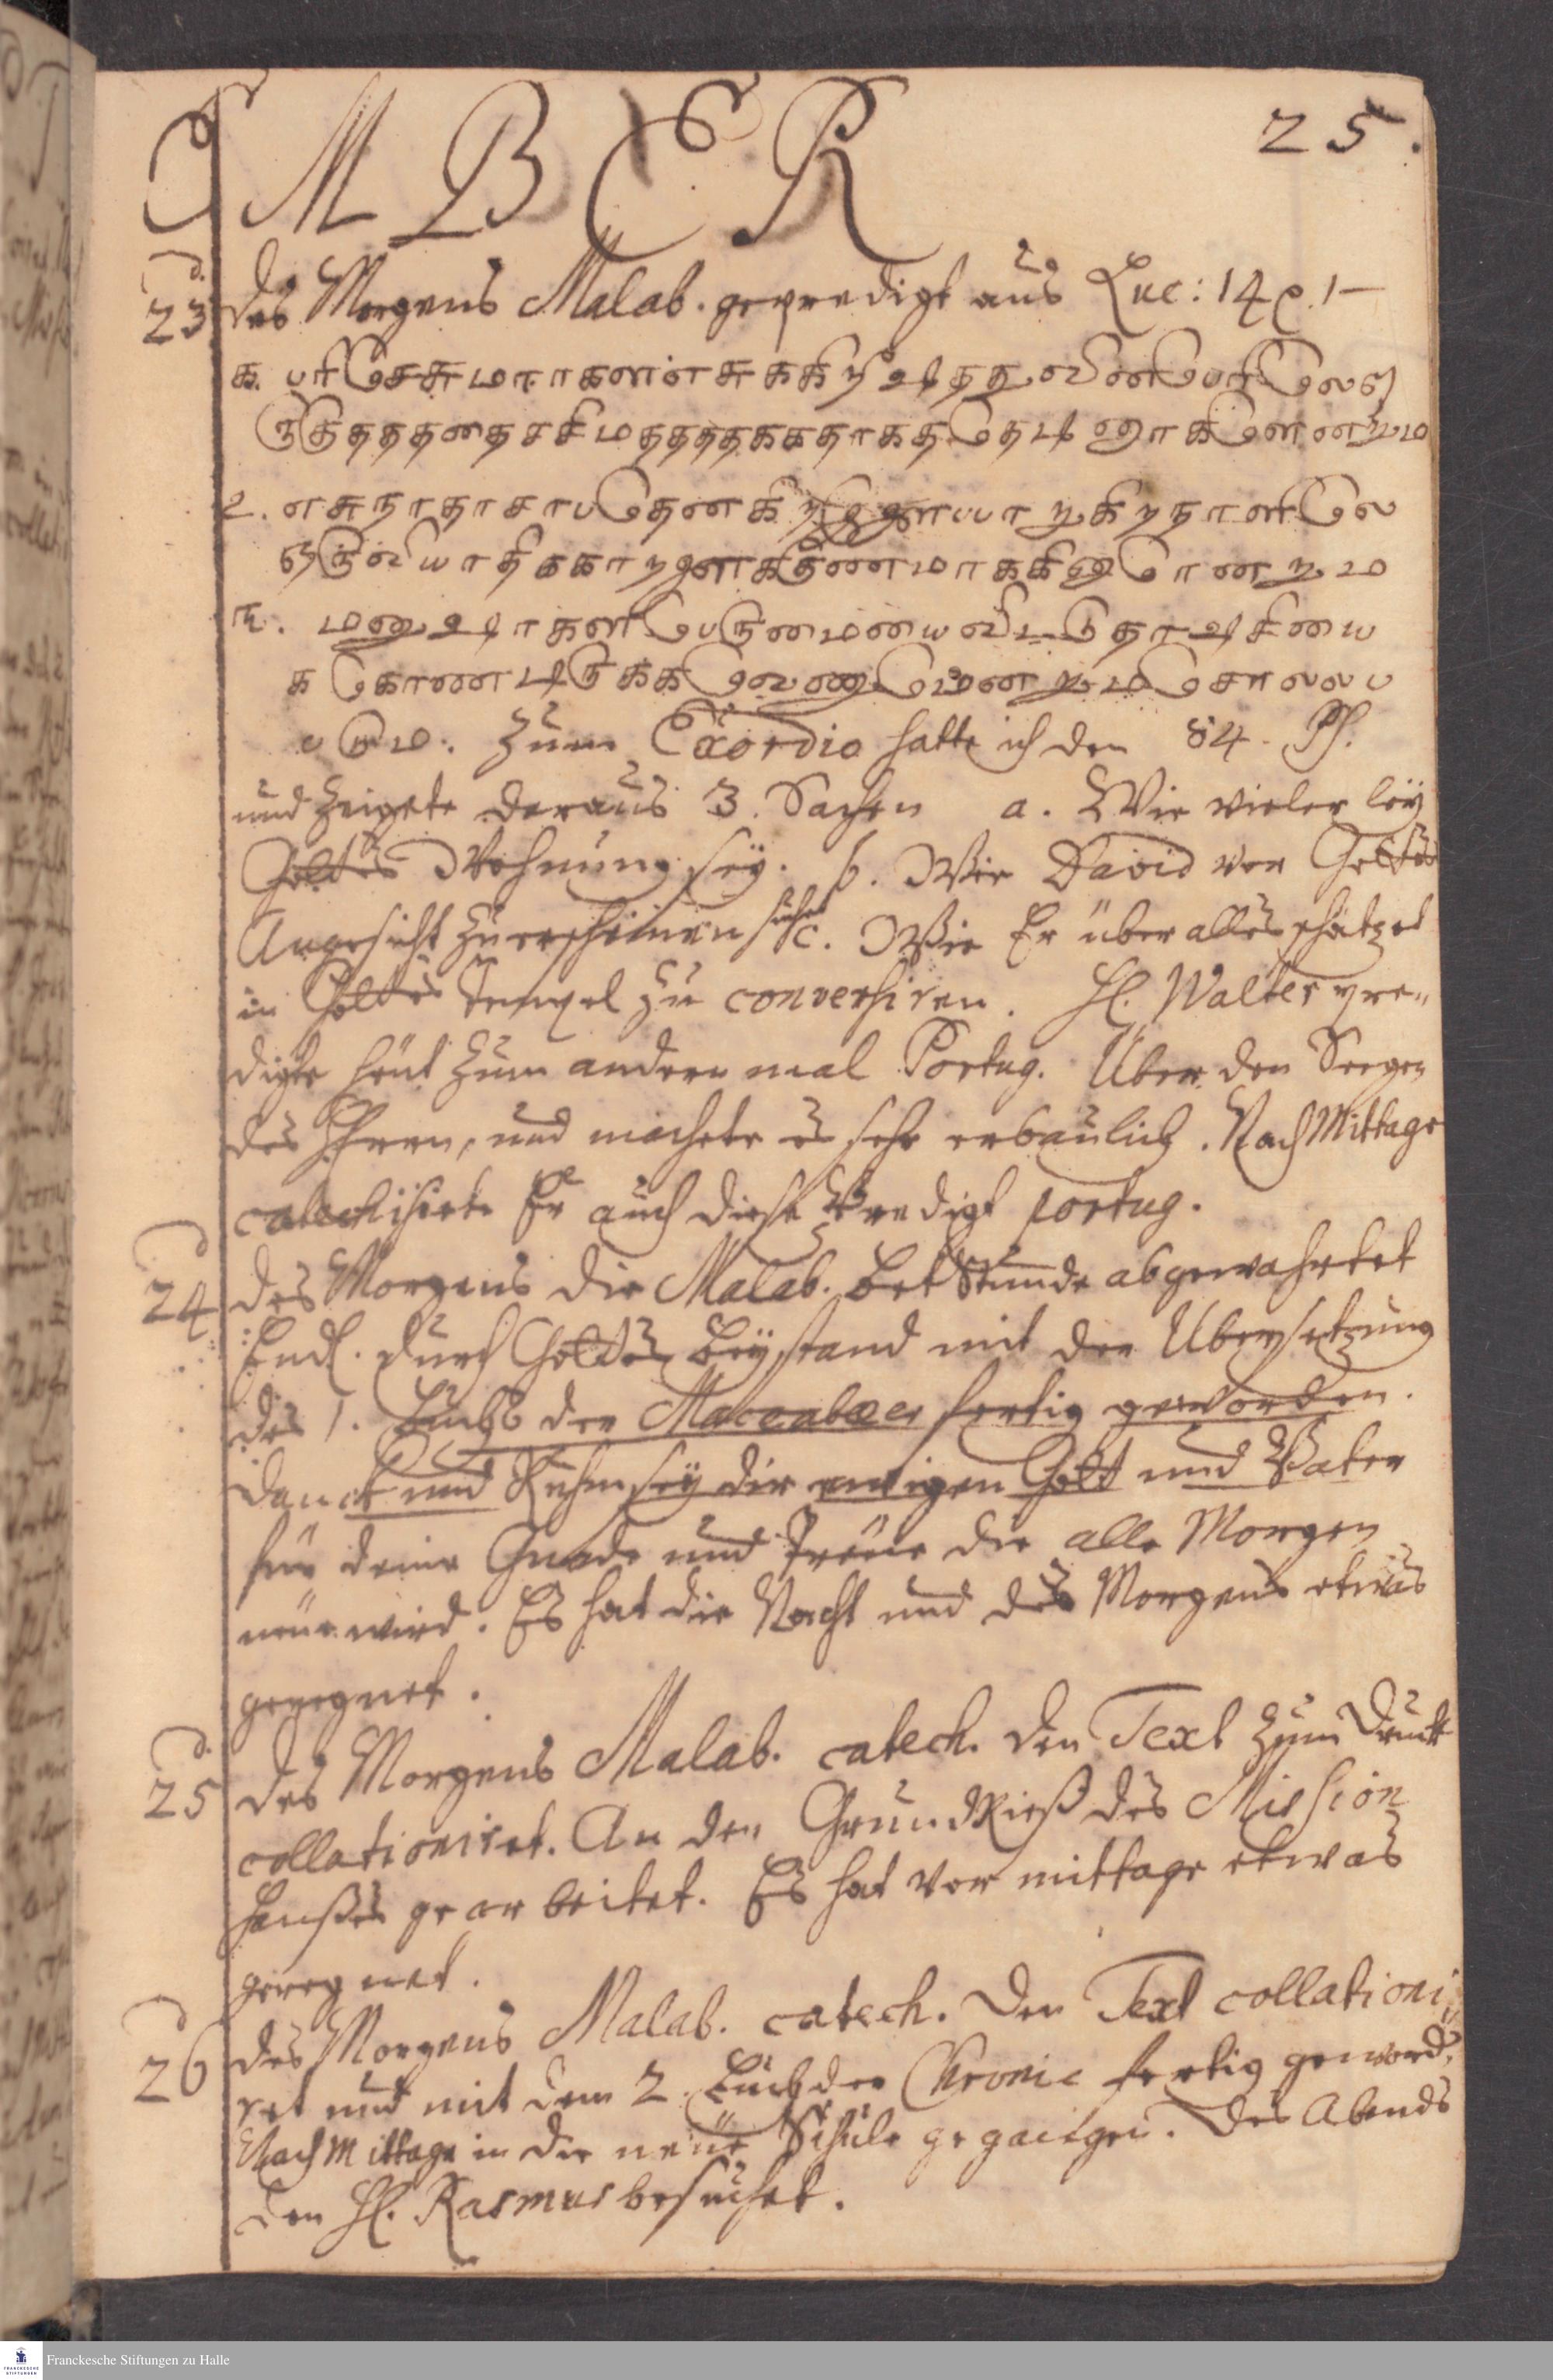 EMBER
25.
d. 23 des Morgens Malab. geprediget aus Luc: 14 p. 1-
க. பரிசேசுமாரகளளசுககிறிஷத்துவினபெரிலெவி
ருத்தத்தைசசிமத்தத்தககதாகததெடினாகளெனறும
௨. எசுநாதாசாபதெனகிறஓயாபபாறுகிறநாளிலெ
விருவியாதிககாறனைககுணமாககினாெனறும
௩. மனுஷாகளபெருமைமையைவிட்டுதாஷசியை
ககொணடிருககவெணுமெனறுமசொலலப
படும. Zum Exordio hatte ich den 84. Ps.
und zeigete daraus 3. Sachen a. Wie vieler leÿ
Gottes Wohnung seÿ. b. Wie David vor Gottes
Angesicht zu erscheinen suche c. Wie Er über alles schätzet
in Gottes Tempel zu conversiren. H. Walter pre„
digte heut zum andern mal Portug. Über den Seegen
des Herrn, und machete es sehr erbaulich. Nach Mittage
catechisirte Er auch diese Predigt portug.
d. 24 des Morgens die Malab. Bet Stunde abgewahrtet
Endl. durch Gottes Beÿstand mit der Ubersetzung
des 1. Buchs der Maccabæer fertig geworden.
Danck und Ruhm seÿ dir ewigen Gott und Vater
für deine Gnade und Treue die alle Morgen
neue wird. Es hat die Nacht und des Morgens etwas
geregnet.
d. 25 des Morgens Malab. catech. den Text zum Druck
collationiret. An den Grundrieß des Mission
Haußes gearbeitet. Es hat vor mittage etwas
geregnet.
d. 26 des Morgens Malab. catech. Den Text collationi„
ret und mit dem 2. Buch der Chronic fertig geword.
Nach Mittage in die neue Schule gegangen. Des Abends
den H. Rasmus besuchet.
Franckesche Stiftungen zu Halle